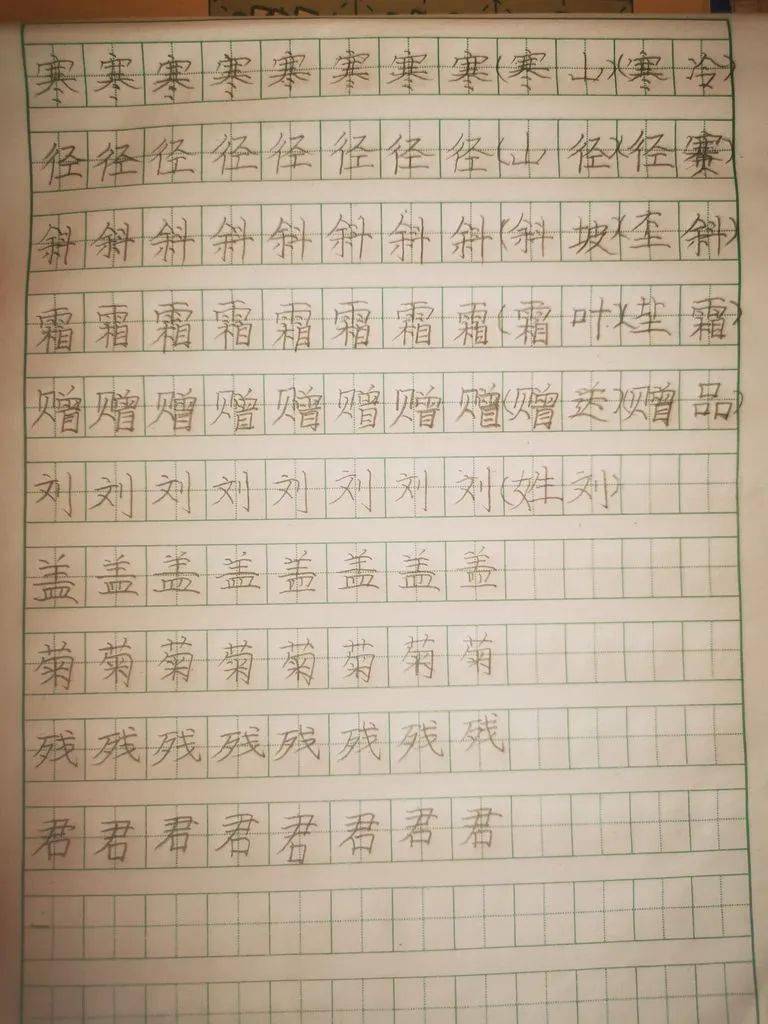 寒寒寒寒寒寒寒寒(寒山)(寒冷)
径径径径径径径径(山径)(径赛)
斜斜斜斜斜斜斜斜(斜坡)(歪斜)
霜霜霜霜霜霜霜霜(霜叶)(霜)
赠赠赠赠赠赠赠赠(赠送)(赠品)
刘刘刘刘刘刘刘刘(姓刘)
盖盖盖盖盖盖盖盖
菊菊菊菊菊菊菊菊
残残残残残残残残
君君君君君君君君